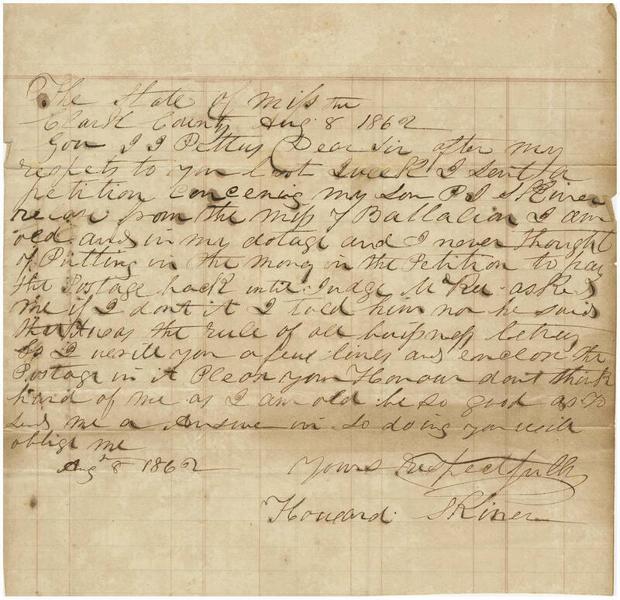 The State of Miss the
Clark County Aug 8 1862
Gov J J Pettus Dear Sir after my
respets to you last week I sent a
petition concening my son P J Skiner
from the Miss 7 Battalian I am
old and in my dotage and I never thought
of Putting in the money in the Petition to pay
the Postage back until Judge asked
me if I dont it I told him no he said
that was the rule of all buisness letters
So I write you a few lines and enclose the
Postage in it Pleas your Honour dont think
hard of me as I am old be so good as to
send me a Answer in so doing you will
oblige me
Aug 8 1862 Yours Respectfully
Howard Skiner